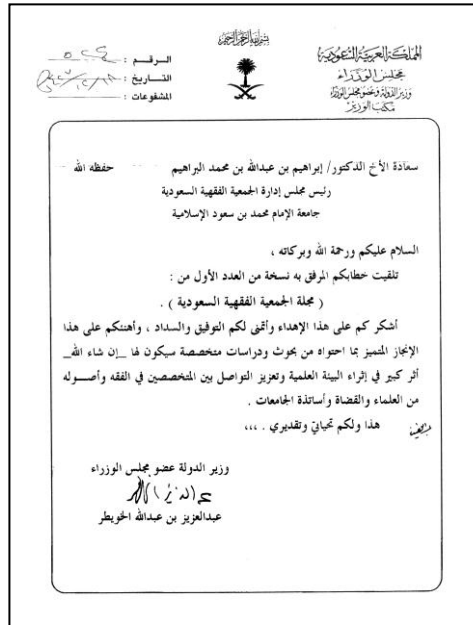 بسم الله الرحمن الرحيم
المملكة العربية السعودية
مجلس الوزراء
وزير الدولة وعضو مجلس الوزراء
مكتب الوزير
الـرقـم :
الـتـاريخ :
المشفوعات :
سعادة الأخ الدكتور/ إبراهيم بن عبدالله بن محمد البراهيم حفظه الله
رئيس مجلس إدارة الجمعية الفقهية السعودية
جامعة الإمام محمد بن سعود الإسلامية
السلام عليكم ورحمة الله وبركاته ،
تلقيت خطابكم المرفق به نسخة من العدد الأول من :
( مجلة الجمعية الفقهية السعودية ) .
أشكر كم على هذا الإهداء وأتمنى لكم التوفيق والسداد ، وأهنئكم على هذا
الإنجاز المتميز بما احتواه من بحوث ودراسات متخصصة سيكون لها _إن شاء الله_
أثر كبير في إثراء البيئة العلمية وتعزيز التواصل بين المتخصصين في الفقه وأصـــوله
من العلماء والقضاة وأساتذة الجامعات .
هذا ولكم تحياتي وتقديري . ،،،
وزير الدولة عضو مجلس الوزراء
عبدالعزيز بن عبدالله الخويطر